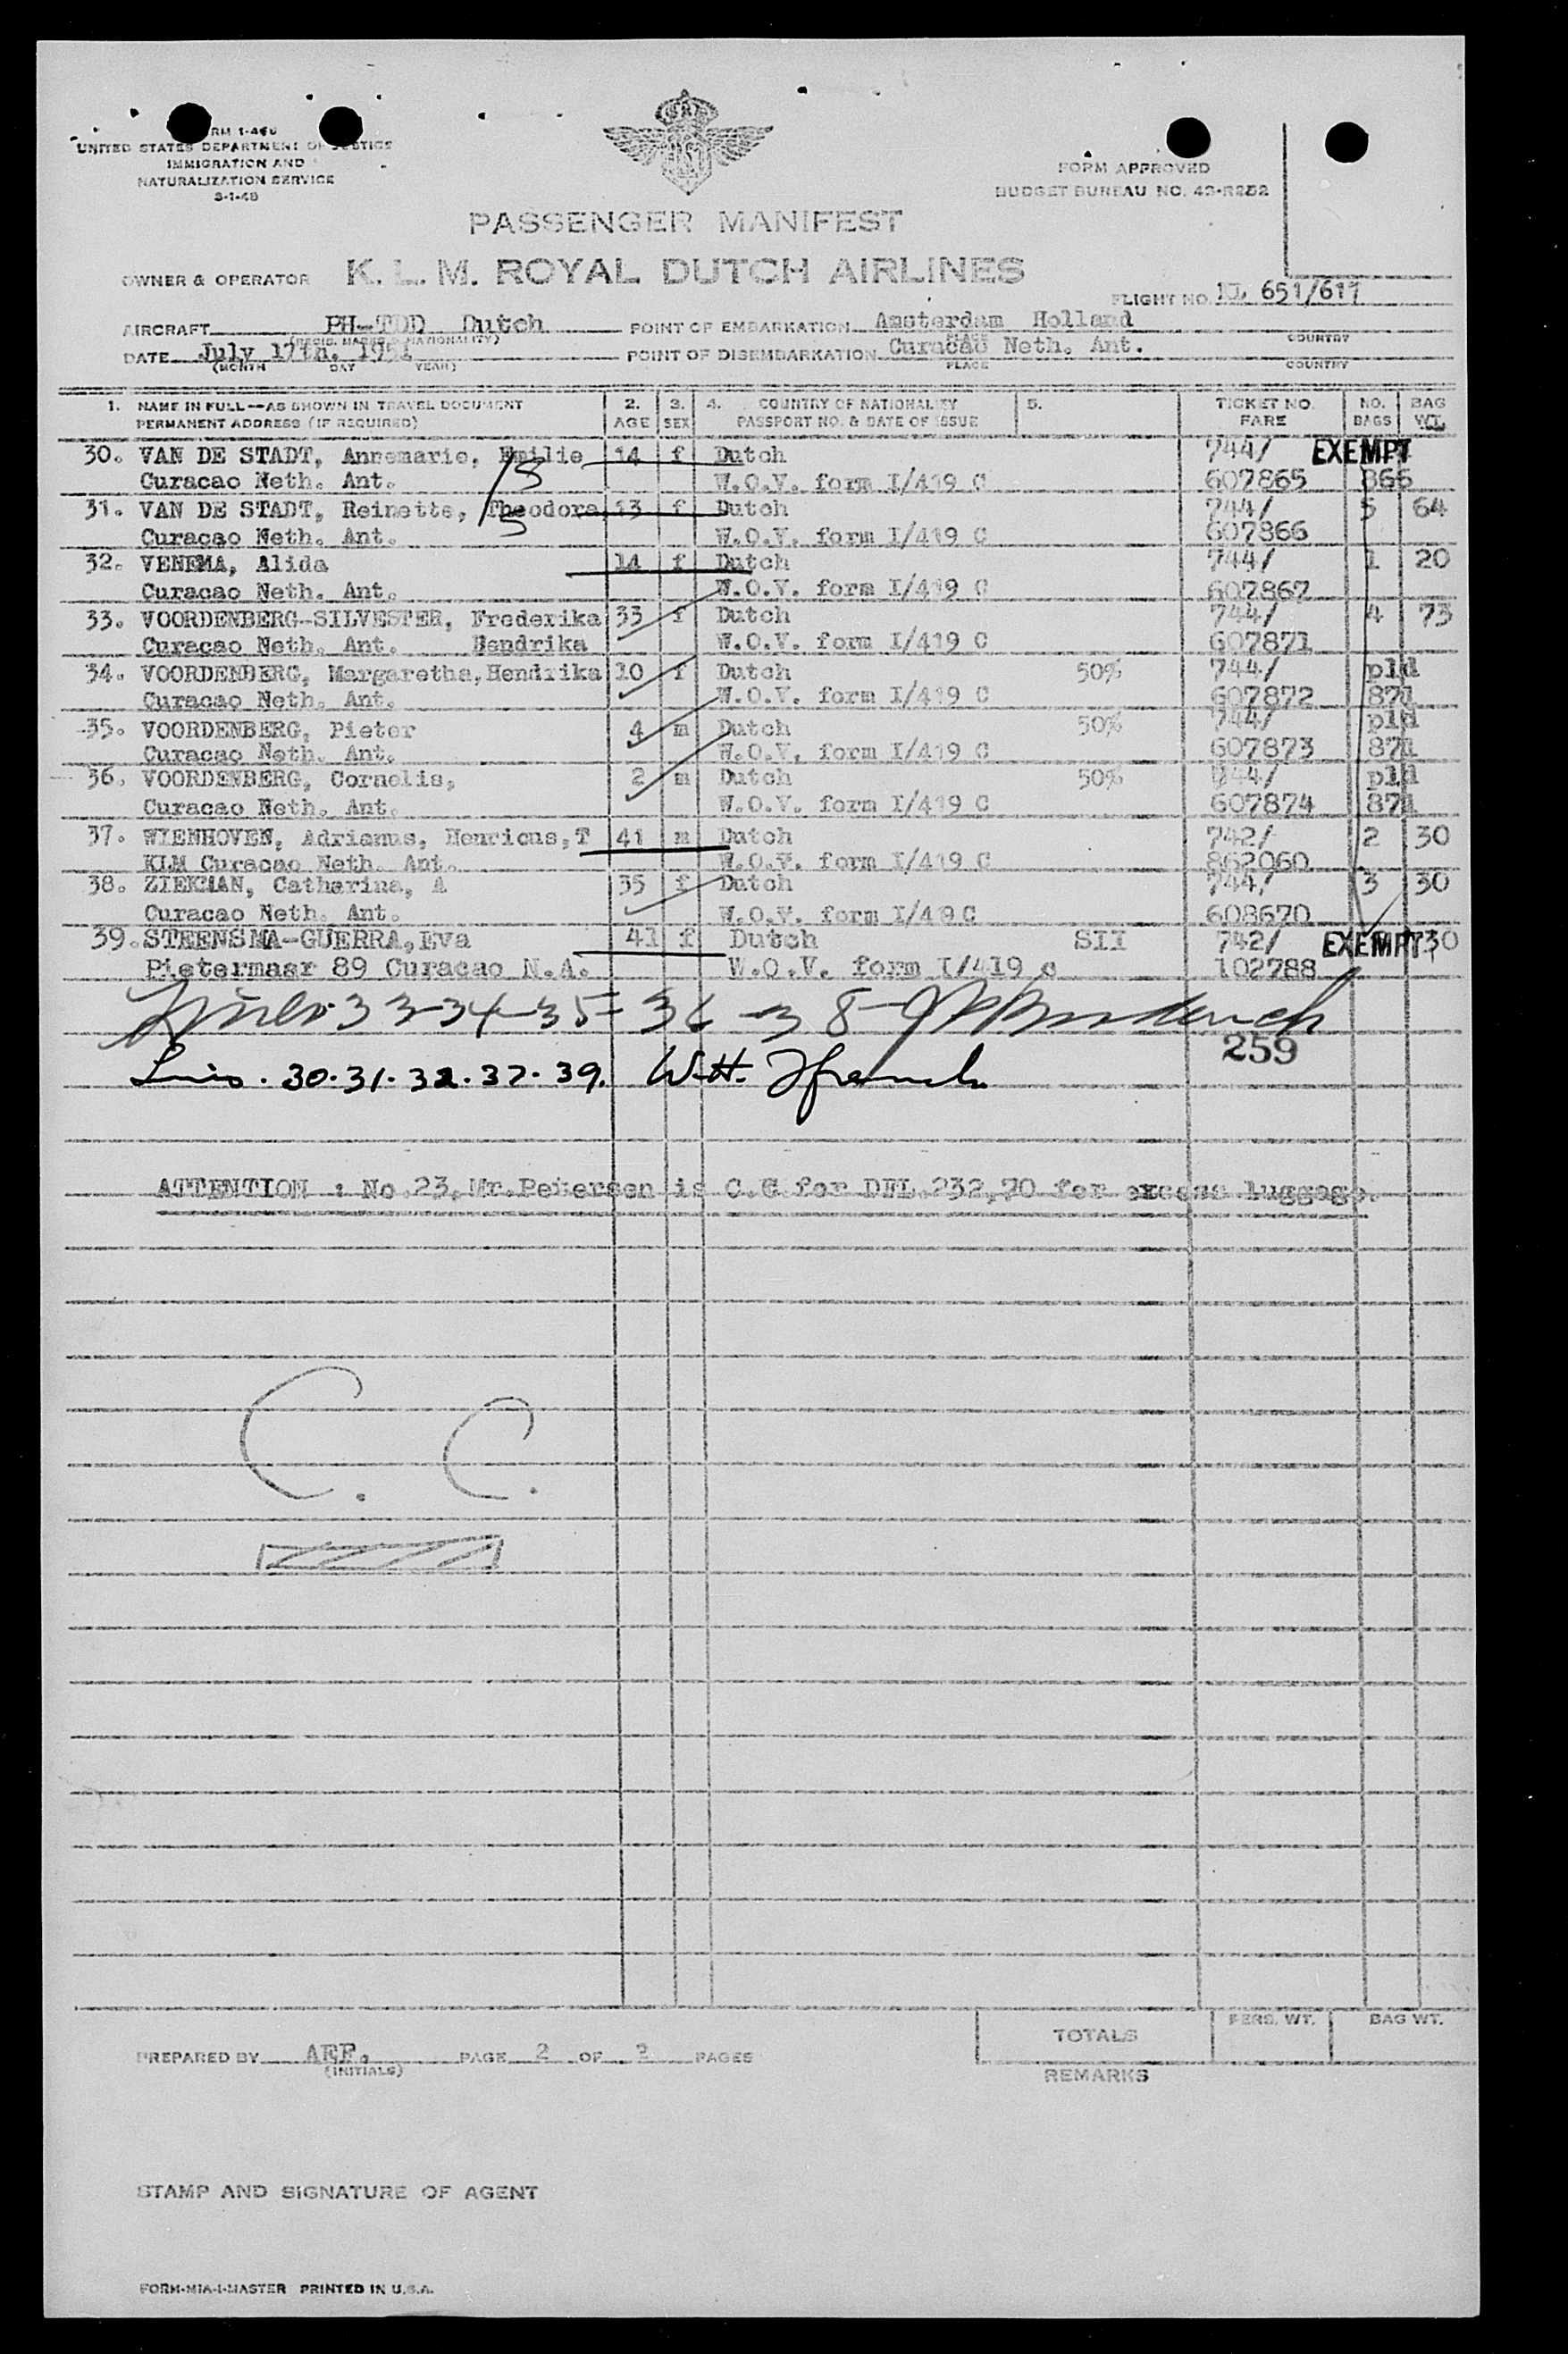 FORM 1-466
UNITED STATES DEPARTMENT OF JUSTICE
IMMIGRATION AND
NATURALIZATION SERVICE
3-1-48
FORM APPROVED
BUDGET BUREAU NO. 43-R252
PASSENGER MANIFEST
OWNER & OPERATOR K. L. M. ROYAL DUTCH AIRLINES
FLIGHT NO. 651/617
AIRCRAFT PH-TDD Dutch POINT OF EMBARKATION Amsterdam Holland
(REGIS. MARKS & NATIONALITY) PLACE COUNTRY
DATE July 17th, 1951 POINT OF DISEMBARKATION Curacao Neth. Ant.
(MONTH DAY YEAR) PLACE COUNTRY
1. NAME IN FULL—AS SHOWN IN TRAVEL DOCUMENT 2. 3. 4. COUNTRY OF NATIONALITY 5. TICKET NO. NO. BAG
PERMANENT ADDRESS (IF REQUIRED) AGE SEX PASSPORT NO. & DATE OF ISSUE FARE BAGS WT.
30. VAN DE STADT, Annemarie, Emilie 14 f Dutch 744/ EXEMPT
Curacao Neth. Ant. W.O.V. form I/419 C 607865 866
31. VAN DE STADT, Reinette, Theodora 13 f Dutch 744/ 5 64
Curacao Neth. Ant. W.O.V. form I/419 C 607866
32. VENEMA, Alida 14 f Dutch 744/ 1 20
Curacao Neth. Ant. W.O.V. form I/419 C 607867
33. VOORDENBERG-SILVESTER, Frederika 33 f Dutch 744/ 4 73
Curacao Neth. Ant. Hendrika W.O.V. form I/419 C 607871
34. VOORDENBERG, Margaretha, Hendrika 10 f Dutch 50% 744/ pld
Curacao Neth. Ant. W.O.V. form I/419 C 607872 871
35. VOORDENBERG, Pieter 4 m Dutch 50% 744/ pld
Curacao Neth. Ant. W.O.V. form I/419 C 607873 871
36. VOORDENBERG, Cornelis, 2 m Dutch 50% 744/ pld
Curacao Neth. Ant. W.O.V. form I/419 C 607874 871
37. WIENHOVEN, Adrianus, Henricus, T 41 m Dutch 742/ 2 30
KLM Curacao Neth. Ant. W.O.V. form I/419 C 862060
38. ZIEKMAN, Catharina, A 35 f Dutch 744/ 3 30
Curacao Neth. Ant. W.O.V. form I/49 C 608670
39. STEENSMA-GUERRA, Eva 41 f Dutch SII 742/ EXEMPT 30
Pietermaar 89 Curacao N.A. W.O.V. form I/419 c 102788
33-34-35-36-38
259
30.31.32.37.39. W.H.
ATTENTION : No 23, Mr. Petersen is C.C for DFL 232,70 for excess luggage.
C. C.
PREPARED BY AEF. PAGE 2 OF 2 PAGES
(INITIALS)
TOTALS PERS. WT. BAG WT.
REMARKS
STAMP AND SIGNATURE OF AGENT
FORM-MIA-1-MASTER PRINTED IN U.S.A.